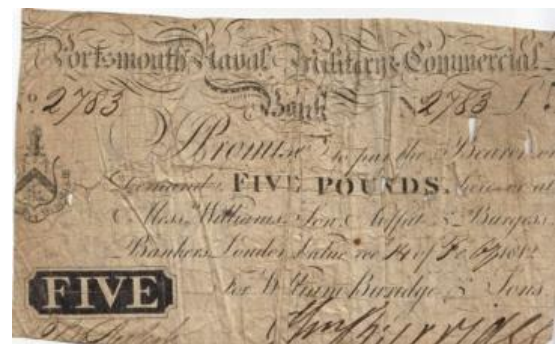 Portsmouth Naval Military & Commercial
Bank
No 2783 No 2783
I Promise to pay the Bearer on
Demand FIVE POUNDS. here or at
Messrs Williams, Son, Moffat & Burgess
Bankers London Value recd 14 of Feby 1812
FIVE For William Burridge & Sons
Wm Burridge